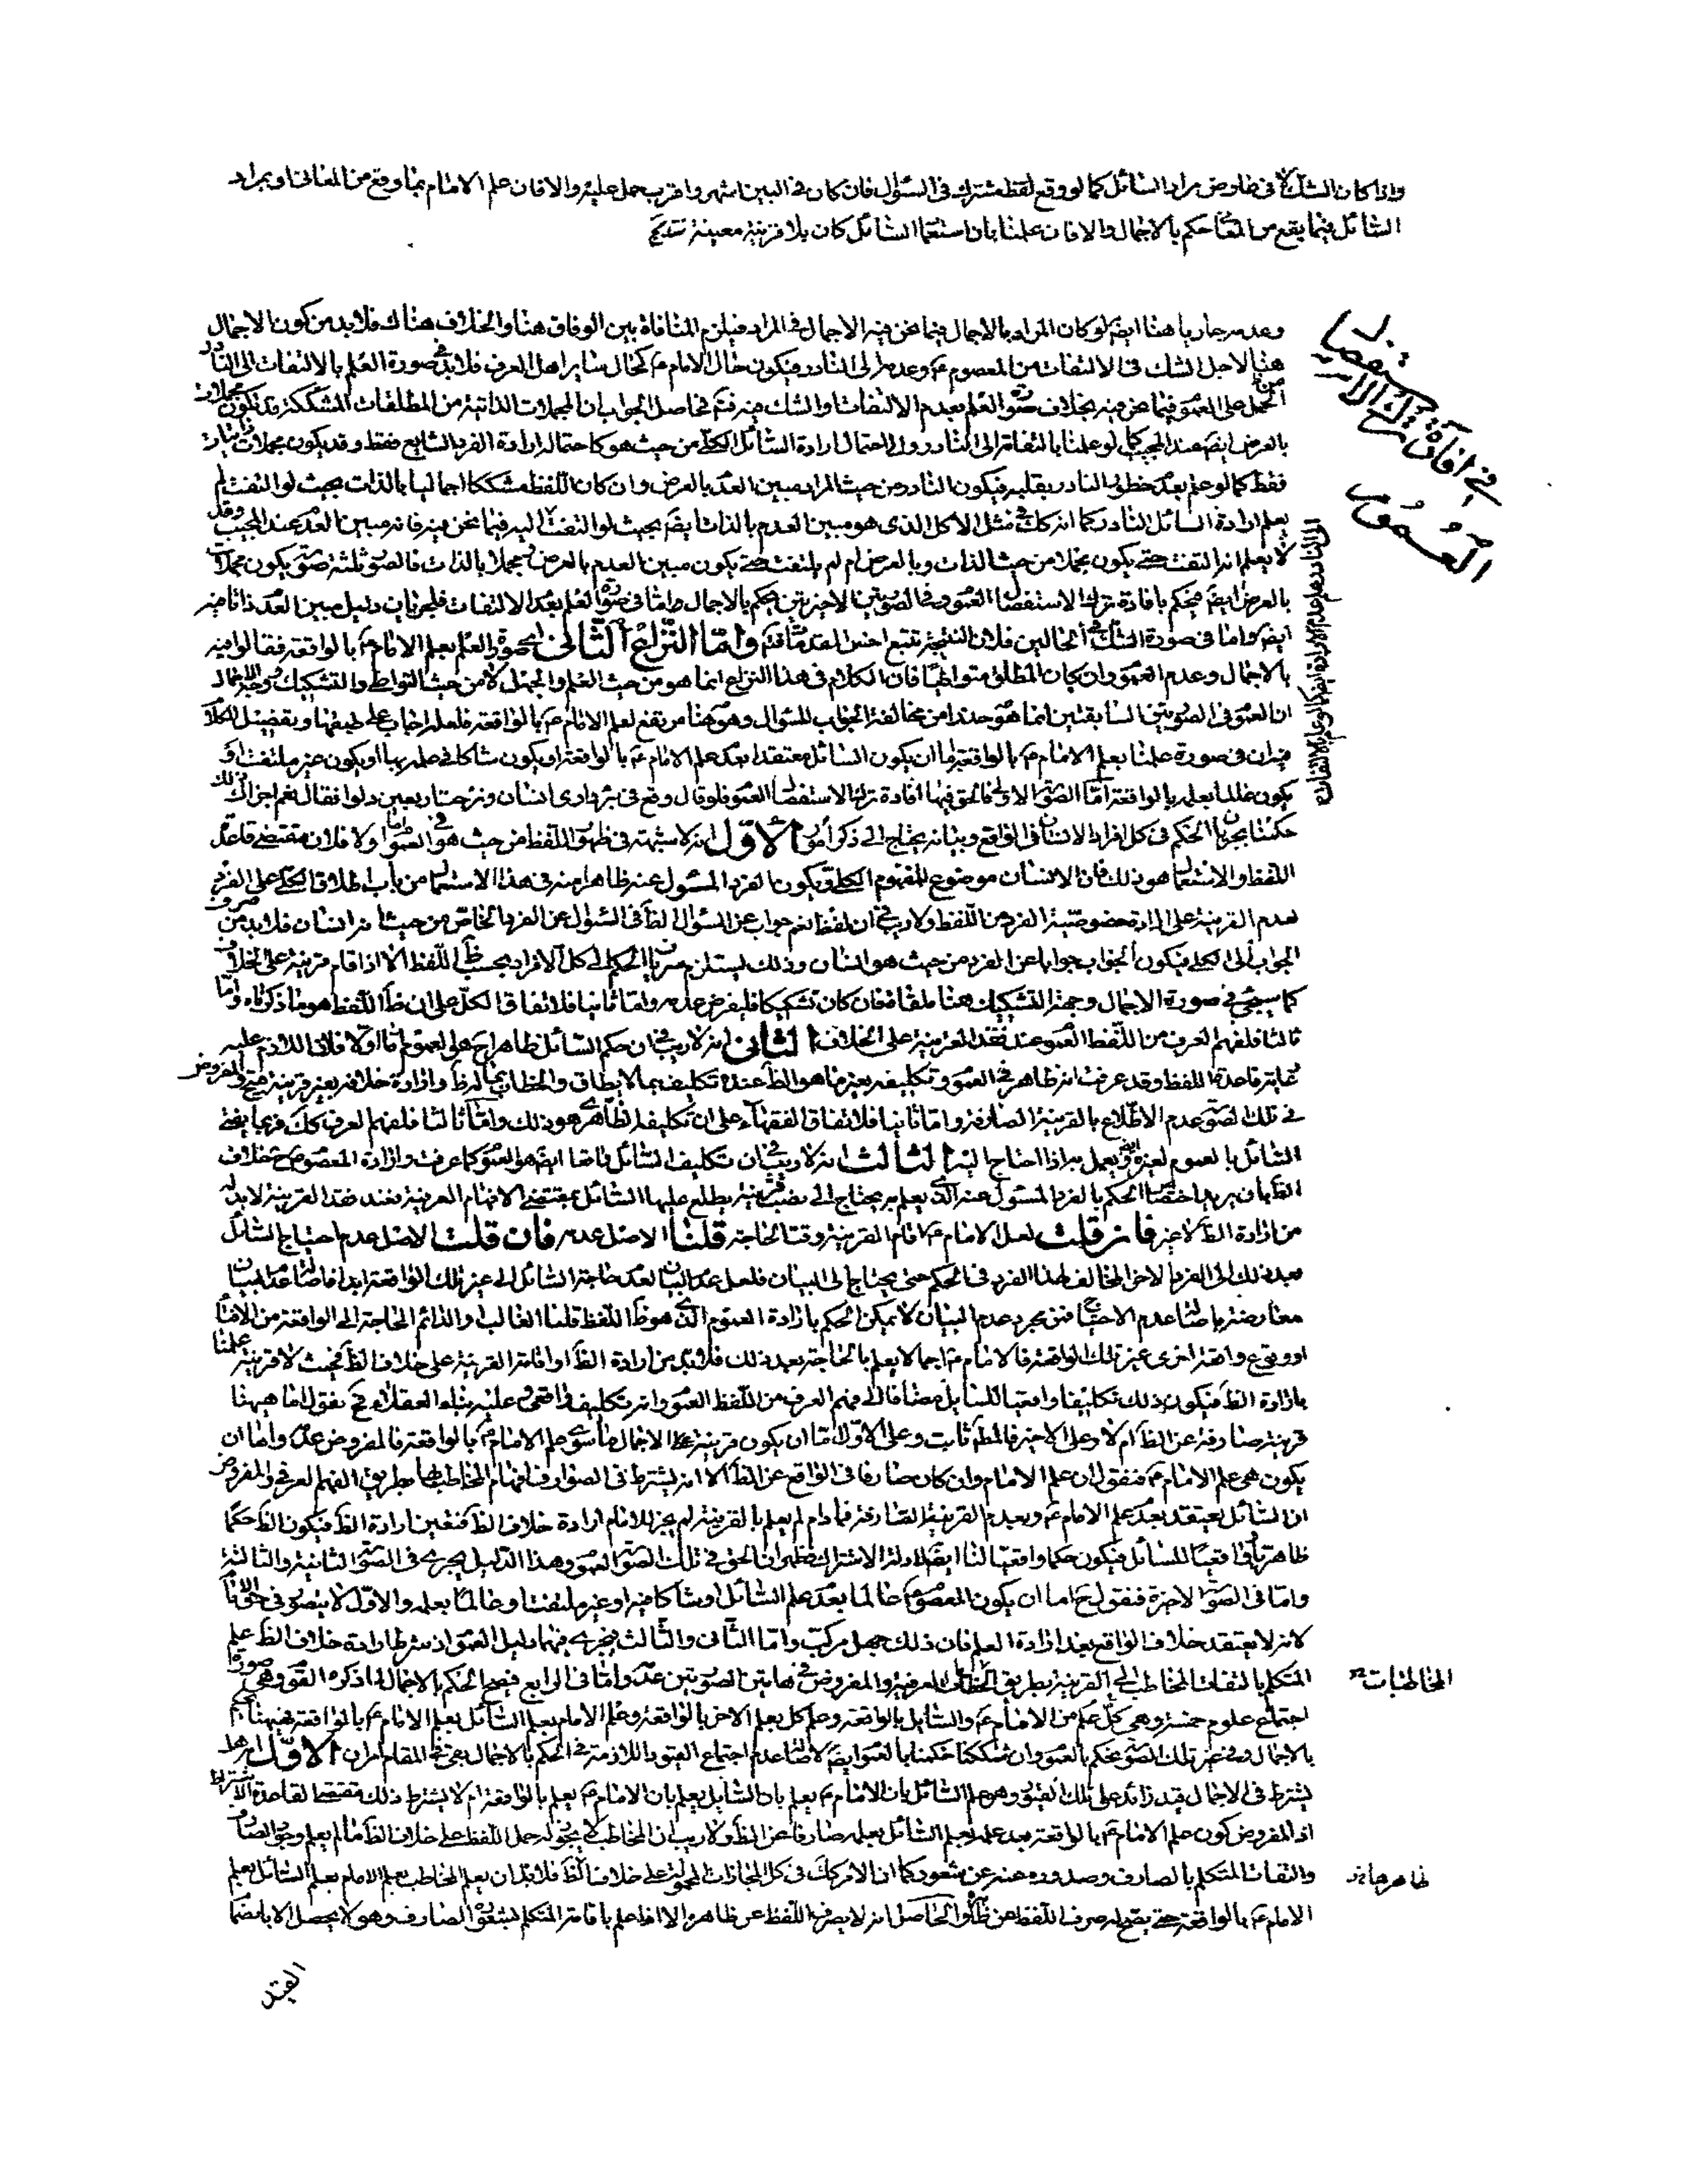 واذا كان الشك في تعارض مراد السائل كما لو وقع لفظ مشترك في السؤال فان كان في البين اشهر واقرب حمل عليه والا فان علم الامام بما وقع من المعاني او بمراد
السائل فيما يقع من حكم بالاجمال والا فان علمنا بان السائل كان بلا قرينة معينة
في افادة ترك الاستفصال
العموم
وعدمه جار يا هنا ايضا لو كان المراد بالاجمال فيما نحن فيه الاجمال في المراد فيلزم المنافاة بين الوفاق هنا والخلاف هناك فلا بد من كون الاجمال
هنا لاجل الشك في الالتفات من المعصوم ع وعدمه الى النادر فيكون حال الامام ع كحال ساير اهل العرف فلا بد في صورة العلم بالالتفات الى النادر
من الحمل على العموم فيما نحن فيه بخلاف صورة العلم بعدم الالتفات او الشك فيه فحاصل الجواب ان المجملات الذاتية من المطلقات المشككة قد تكون مجملات
بالعرض ايضا عند المجيب كما لو علمنا بالتفاته الى النادر و احتمال ارادة السائل الكلي من حيث هو كاحتمال ارادة الفرد الشايع فقط وقد يكون مجملات
فقط كما لو علم بعدم خطور النادر بقلبه فيكون النادر من حيث المراد مبين العدم بالعرض وان كان اللفظ مشككا اجماليا بالذات بحيث لو التفت لم
يعلم ارادة السائل النادر كما انه كك في مثل الاكل الذي هو مبين العدم بالذات ايضا بحيث لو التفت اليه فيما نحن فيه فانه مبين العدم عند المجيب وقد
لا يعلم انه التفت حتى يكون مجملا من حيث الذات وبالعرض ام لم يلتفت حتى يكون مبين العدم بالعرض مجملا بالذات فالصور ثلثة صورة يكون مجملا
بالعرض ايضا فيحكم بافادة ترك الاستفصال العموم وفي الصورتين الاخيرتين يحكم بالاجمال واما في صورة العلم بعدم الالتفات فلجريان دليل مبين العدم ذاتا فيه
ايضا واما في صورة الشك في الحالين فلان النتيجة تتبع اخس المقدمات واما النزاع الثاني في صورة العلم بعلم الامام ع بالواقعة فقالوا فيه
بالاجمال وعدم العموم وان كان المطلق متواطيا فان الكلام في هذا النزاع انما هو من حيث العلم والجهل لا من حيث التواطى والتشكيك ووجه الاجمال
ان العموم في الصورتين السابقتين انما هو حذرا من مخالفة الجواب للسؤال وهو هنا مرتفع لعلم الامام ع بالواقعة فلعله اجاب على طبقها وتفصيل الكلام
فيه ان في صورة علمنا بعلم الامام ع بالواقعة اما ان يكون السائل معتقدا بعدم علم الامام ع بالواقعة او يكون شاكا في علمه بها او يكون غير ملتفت او
يكون عالما بعلمه بالواقعة اما الصورة الاولى فالحق فيها افادة ترك الاستفصال العموم فلو قال وقع في بئر داري انسان ونزحت اربعين دلوا فقال نعم اجزاك ذلك
حكمنا بجريان الحكم في كل افراد الانسان في الواقع وبيانه يحتاج الى ذكر امور الاول انه لا شبهة في ظهور اللفظ من حيث هو في العموم اما اولا فلان مقتضى قاعدة
اللفظ والاستعمال هو ذلك فان الانسان موضوع للمفهوم الكلي ويكون الفرد المسئول عنه ظاهرا منه في هذا الاستعمال من باب اطلاق الكلي على الفرد
لعدم القرينة على ارادة خصوصية الفرد من اللفظ ولا ريب في ان لفظ نعم جواب عن السؤال الظاهر في السؤال عن الفرد الخاص من حيث انه انسان فلا بد من صرف
الجواب الى الكلي فيكون الجواب جوابا عن الفرد من حيث هو انسان وذلك يستلزم سريان الحكم الى كل الافراد بحسب ظ اللفظ الا اذا قام قرينة على الخلاف
كما سيجئ في صورة الاجمال وجهة التشكيك هنا ملقاة فان كان تشكيكا فليفرض عدمه واما ثانيا فلاتفاق الكل على ان ظ اللفظ هو ما ذكرناه واما
ثالثا فلفهم العرف من اللفظ العموم عند فقد القرينة على الخلاف الثاني انه لا ريب في ان حكم السائل ظاهرا ح هو العموم اما اولا فلان اللازم عليه
متابعة قاعدة اللفظ وقد عرفت انه ظاهر في العموم وتكليفه بغير ما هو الظ عنده تكليف بما لا يطاق والخطاب بما له ظ وارادة خلافه بغير قرينة قبيح والمفروض
في تلك الصورة عدم الاطلاع بالقرينة الصارفة واما ثانيا فلاتفاق الفقهاء على ان تكليفه الظاهري هو ذلك واما ثالثا فلفهم العرف كك فربما يفتى
السائل بالعموم لغيره ويعمل به اذا احتاج اليه الثالث انه لا ريب في ان تكليف السائل واقعا ايضا هو العموم كما عرفت وارادة المعصوم ع خلاف
الظ بان يريد اختصاص الحكم بالفرد المسئول عنه الذي يعلم به يحتاج الى نصب قرينة يطلع عليها السائل بمقتضى الافهام العرفية فعند فقد القرينة لا بد له
من ارادة الظ لا غير فان قلت لعل الامام ع اقام القرينة وقت الحاجة قلنا الاصل عدمه فان قلت الاصل عدم احتياج السائل
بعد ذلك الى الفرد الاخر المخالف لهذا الفرد في الحكم حتى يحتاج الى البيان فلعل عدم البيان لعدم حاجة السائل الى غير تلك الواقعة ابدا فاصالة عدم البيان
معارضة باصالة عدم الاحتياج فمن مجرد عدم البيان لا يمكن الحكم بارادة العموم الذي هو ظ اللفظ قلنا الغالب والدائم الحاجة الى الواقعة من الافتاء
او وقوع واقعة اخرى غير تلك الواقعة فالامام ع اجمالا يعلم بالحاجة بعد ذلك فلا بد من ارادة الظ او اقامة القرينة على خلاف الظ فحيث لا قرينة علمنا
بارادة الظ فيكون ذلك تكليفا واقعيا للسائل مضافا الى فهم العرف من اللفظ العموم وانه تكليف واقعي عليه بناء العقلاء فح نقول اما هيهنا
قرينة صارفة عن الظ ام لا وعلى الاخير فالمط ثابت وعلى الاول اما ان يكون قرينة الاجمال ما سوى علم الامام ع بالواقعة فالمفروض عدمه واما ان
يكون هي علم الامام ع فنقول ان علم الامام وان كان صارفا في الواقع عن الظ الا انه يشترط في الصوارف افهام المخاطب بها بطريق الفهم العرفي والمفروض
ان السائل يعتقد بعدم علم الامام ع وبعدم القرينة الصارفة فما دام لم يعلم بالقرينة لم يجز للامام ارادة خلاف الظ فتعين ارادة الظ فيكون الظ حكما
ظاهريا واقعيا للسائل فيكون حكما واقعيا لنا ايضا لادلة الاشتراك فظهر ان الحق في تلك الصورة العموم وهذا الدليل يجري في الصورة الثانية والثالثة
واما في الصورة الاخيرة فنقول ح اما ان يكون المعصوم ع عالما بعدم علم السائل او شاكا فيه او غير ملتفت او عالما بعلمه والاول لا يتصور في حق الامام
لانه لا يعتقد خلاف الواقع بعد ارادة العلم فان ذلك جهل مركب واما الثاني والثالث فيجري فيهما دليل العموم اذ شرط ارادة خلاف الظ علم
المتكلم بالتفات المخاطب الى القرينة بطريق المخاطبات العرفية والمفروض في هاتين الصورتين عدمه واما في الرابع فيصح الحكم بالاجمال لما ذكره القوم وهي صورة
اجتماع علوم خمسة وهي كل علم من الامام ع والسائل بالواقعة وعلم كل بعلم الاخر بالواقعة وعلم الامام بعلم السائل بعلم الامام ع بالواقعة فيها
بالاجمال وفي غير تلك الصورة نحكم بالعموم وان شككنا حكمنا بالعموم ايضا لاصالة عدم اجتماع القيود اللازمة في الحكم بالاجمال بقي في المقام امران الاول انه هل
يشترط في الاجمال قيد زائد على تلك القيود وهو علم السائل بان الامام ع يعلم بان السائل يعلم بان الامام ع يعلم بالواقعة ام لا يشترط ذلك مقتضى القاعدة الاشتراط
اذ المفروض كون علم الامام ع بالواقعة بعد علمه بعلم السائل بعلمه صارفا عن الظ ولا ريب ان المخاطب لا يجوز له حمل اللفظ على خلاف الظ ما لم يعلم وجود الصارف
والتفات المتكلم بالصارف وصدوره عنه عن شعور كما ان الامر كك في كل المجازات المحمولة على خلاف الظ فلا بد ان يعلم المخاطب بعلم الامام بعلم السائل بعلم
الامام ع بالواقعة حتى يصح له صرف اللفظ عن ظاهره والحاصل انه لا يصرف اللفظ عن ظاهره الا اذا علم باقامة المتكلم الصارف وهو لا يحصل الا بانضمام
المخاطبات
القيد